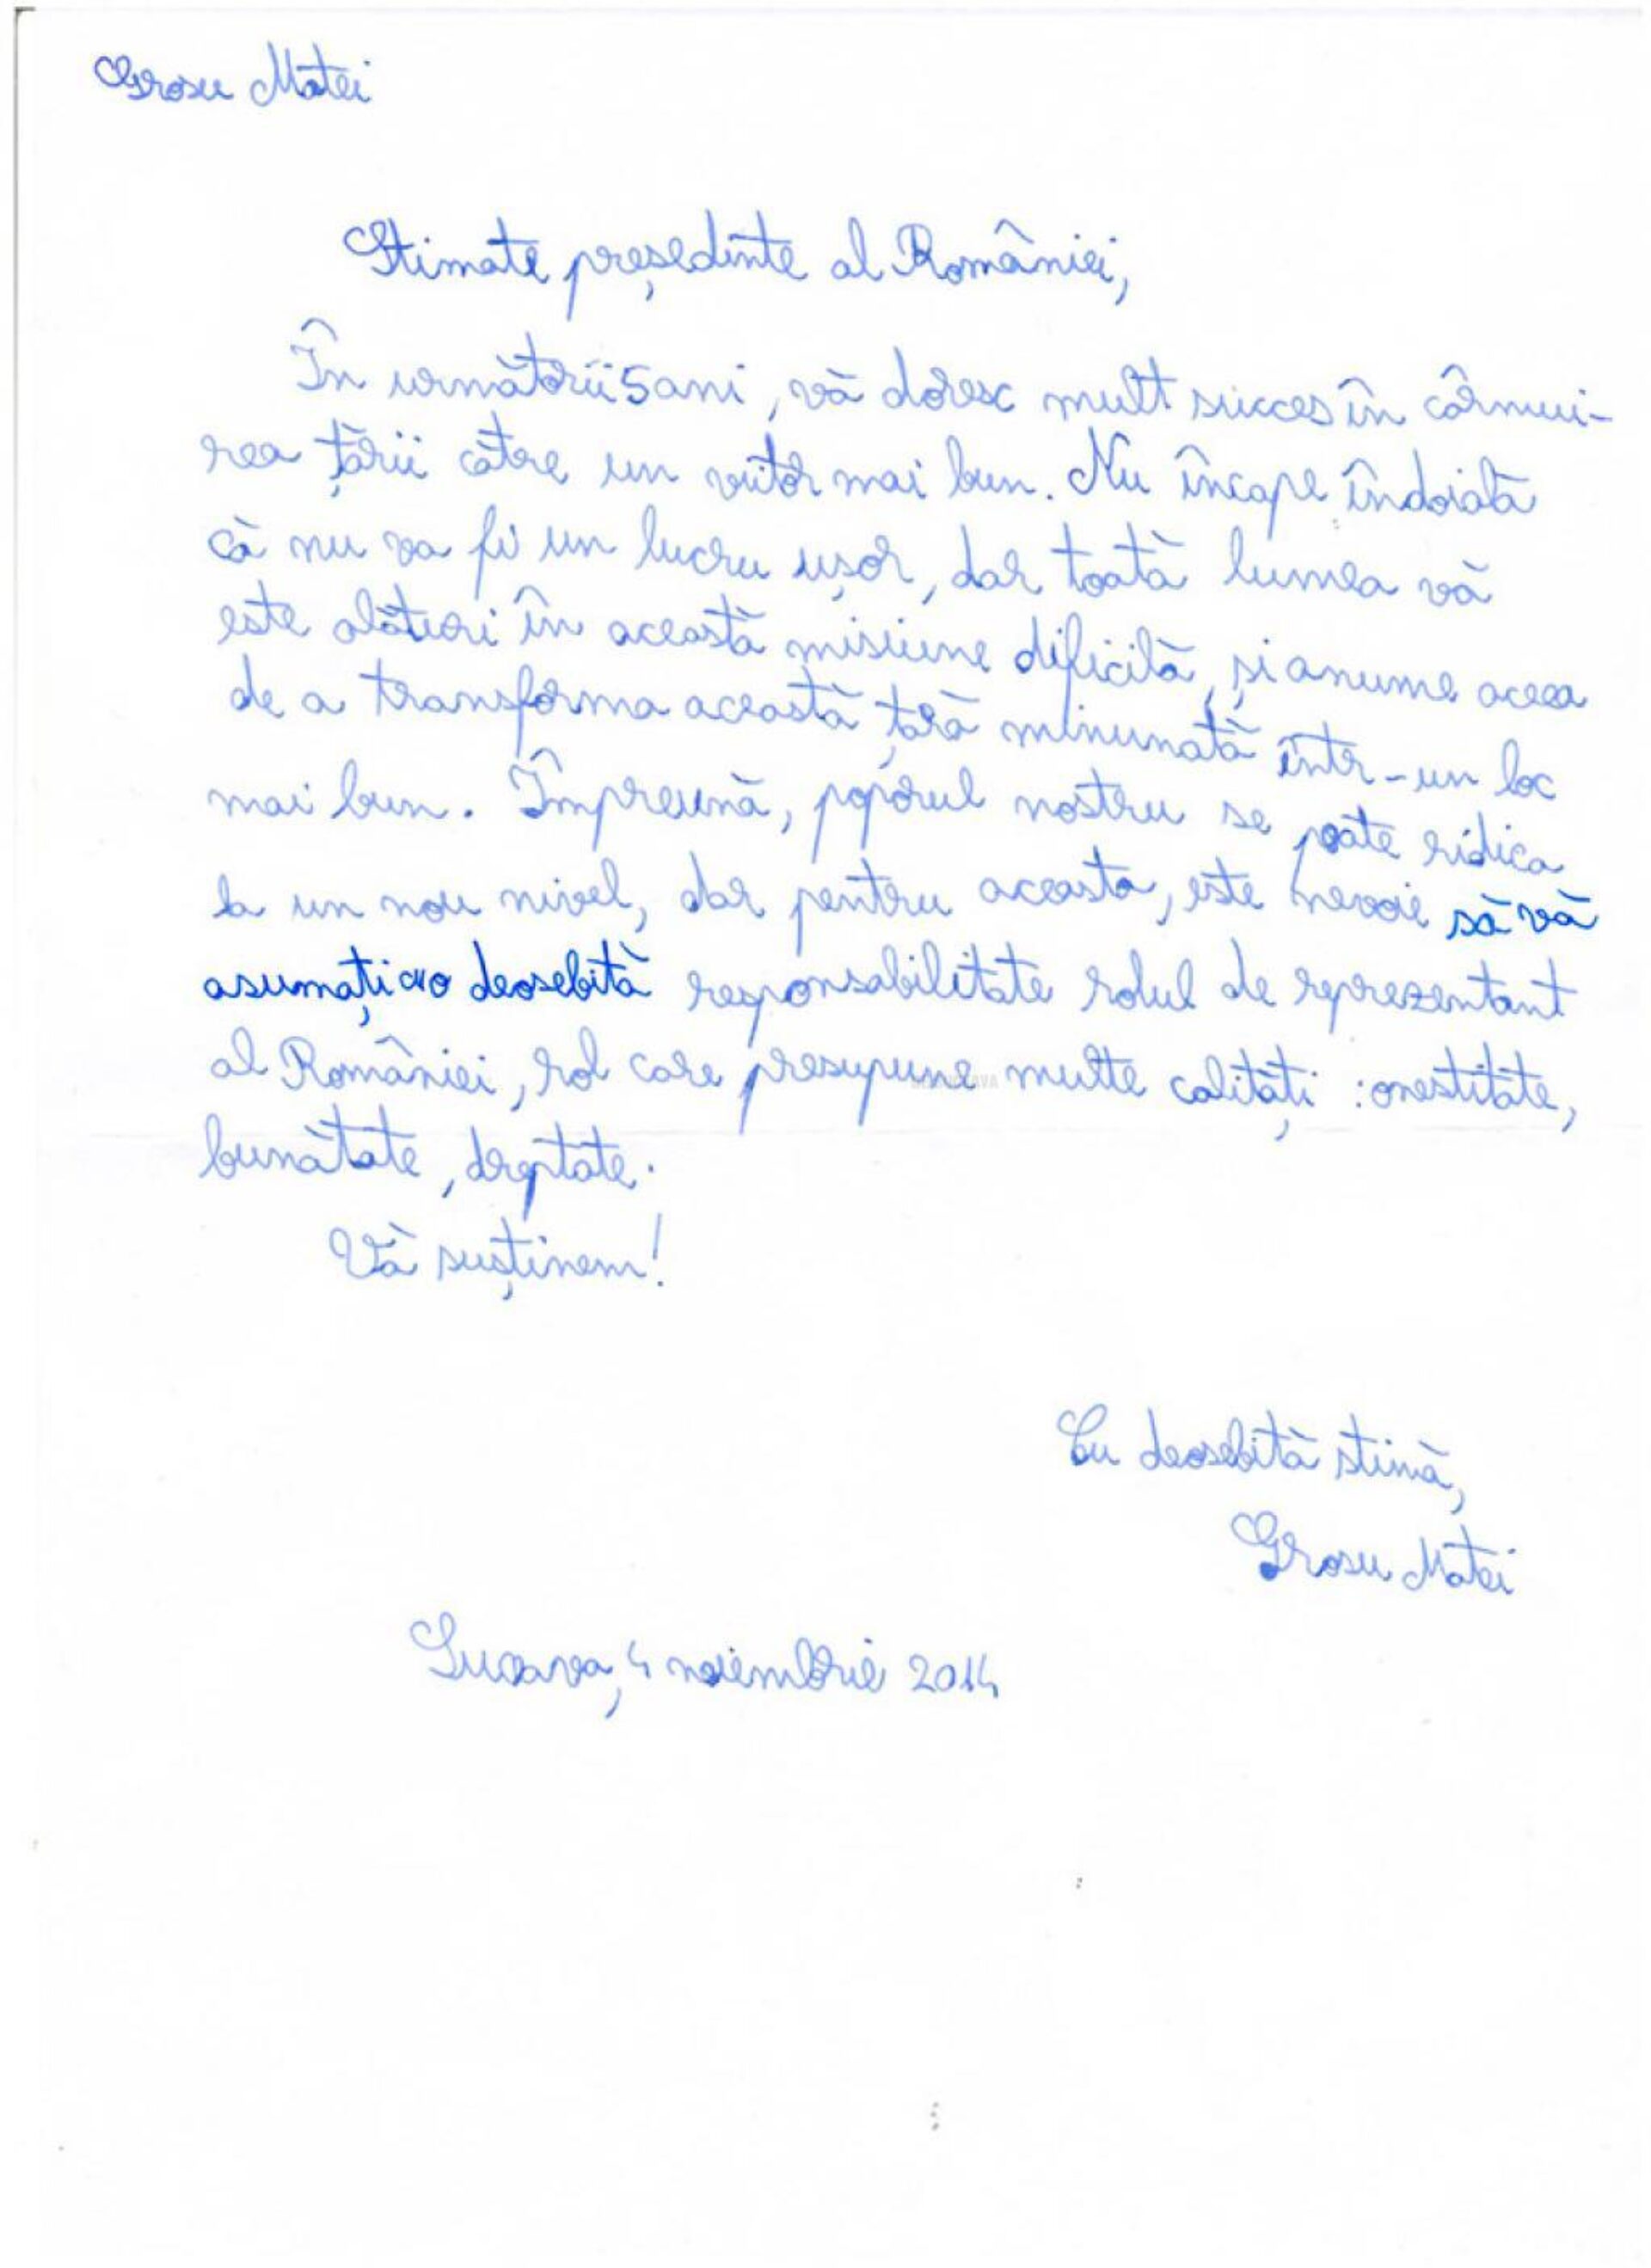 Grosu Matei
Stimate președinte al României,
În următorii 5 ani, vă doresc mult succes în cârmui-
rea țării către un viitor mai bun. Nu încape îndoială
că nu va fi un lucru ușor, dar toată lumea vă
este alături în această misiune dificilă, și anume aceea
de a transforma această țară minunată într-un loc
mai bun. Împreună, poporul nostru se poate ridica
la un nou nivel, dar pentru aceasta, este nevoie să vă
asumați o deosebită responsabilitate rolul de reprezentant
al României, rol care presupune multe calități : onestitate,
bunătate, dreptate.
Vă susținem!
Cu deosebită stimă,
Grosu Matei
Suceava, 4 noiembrie 2014